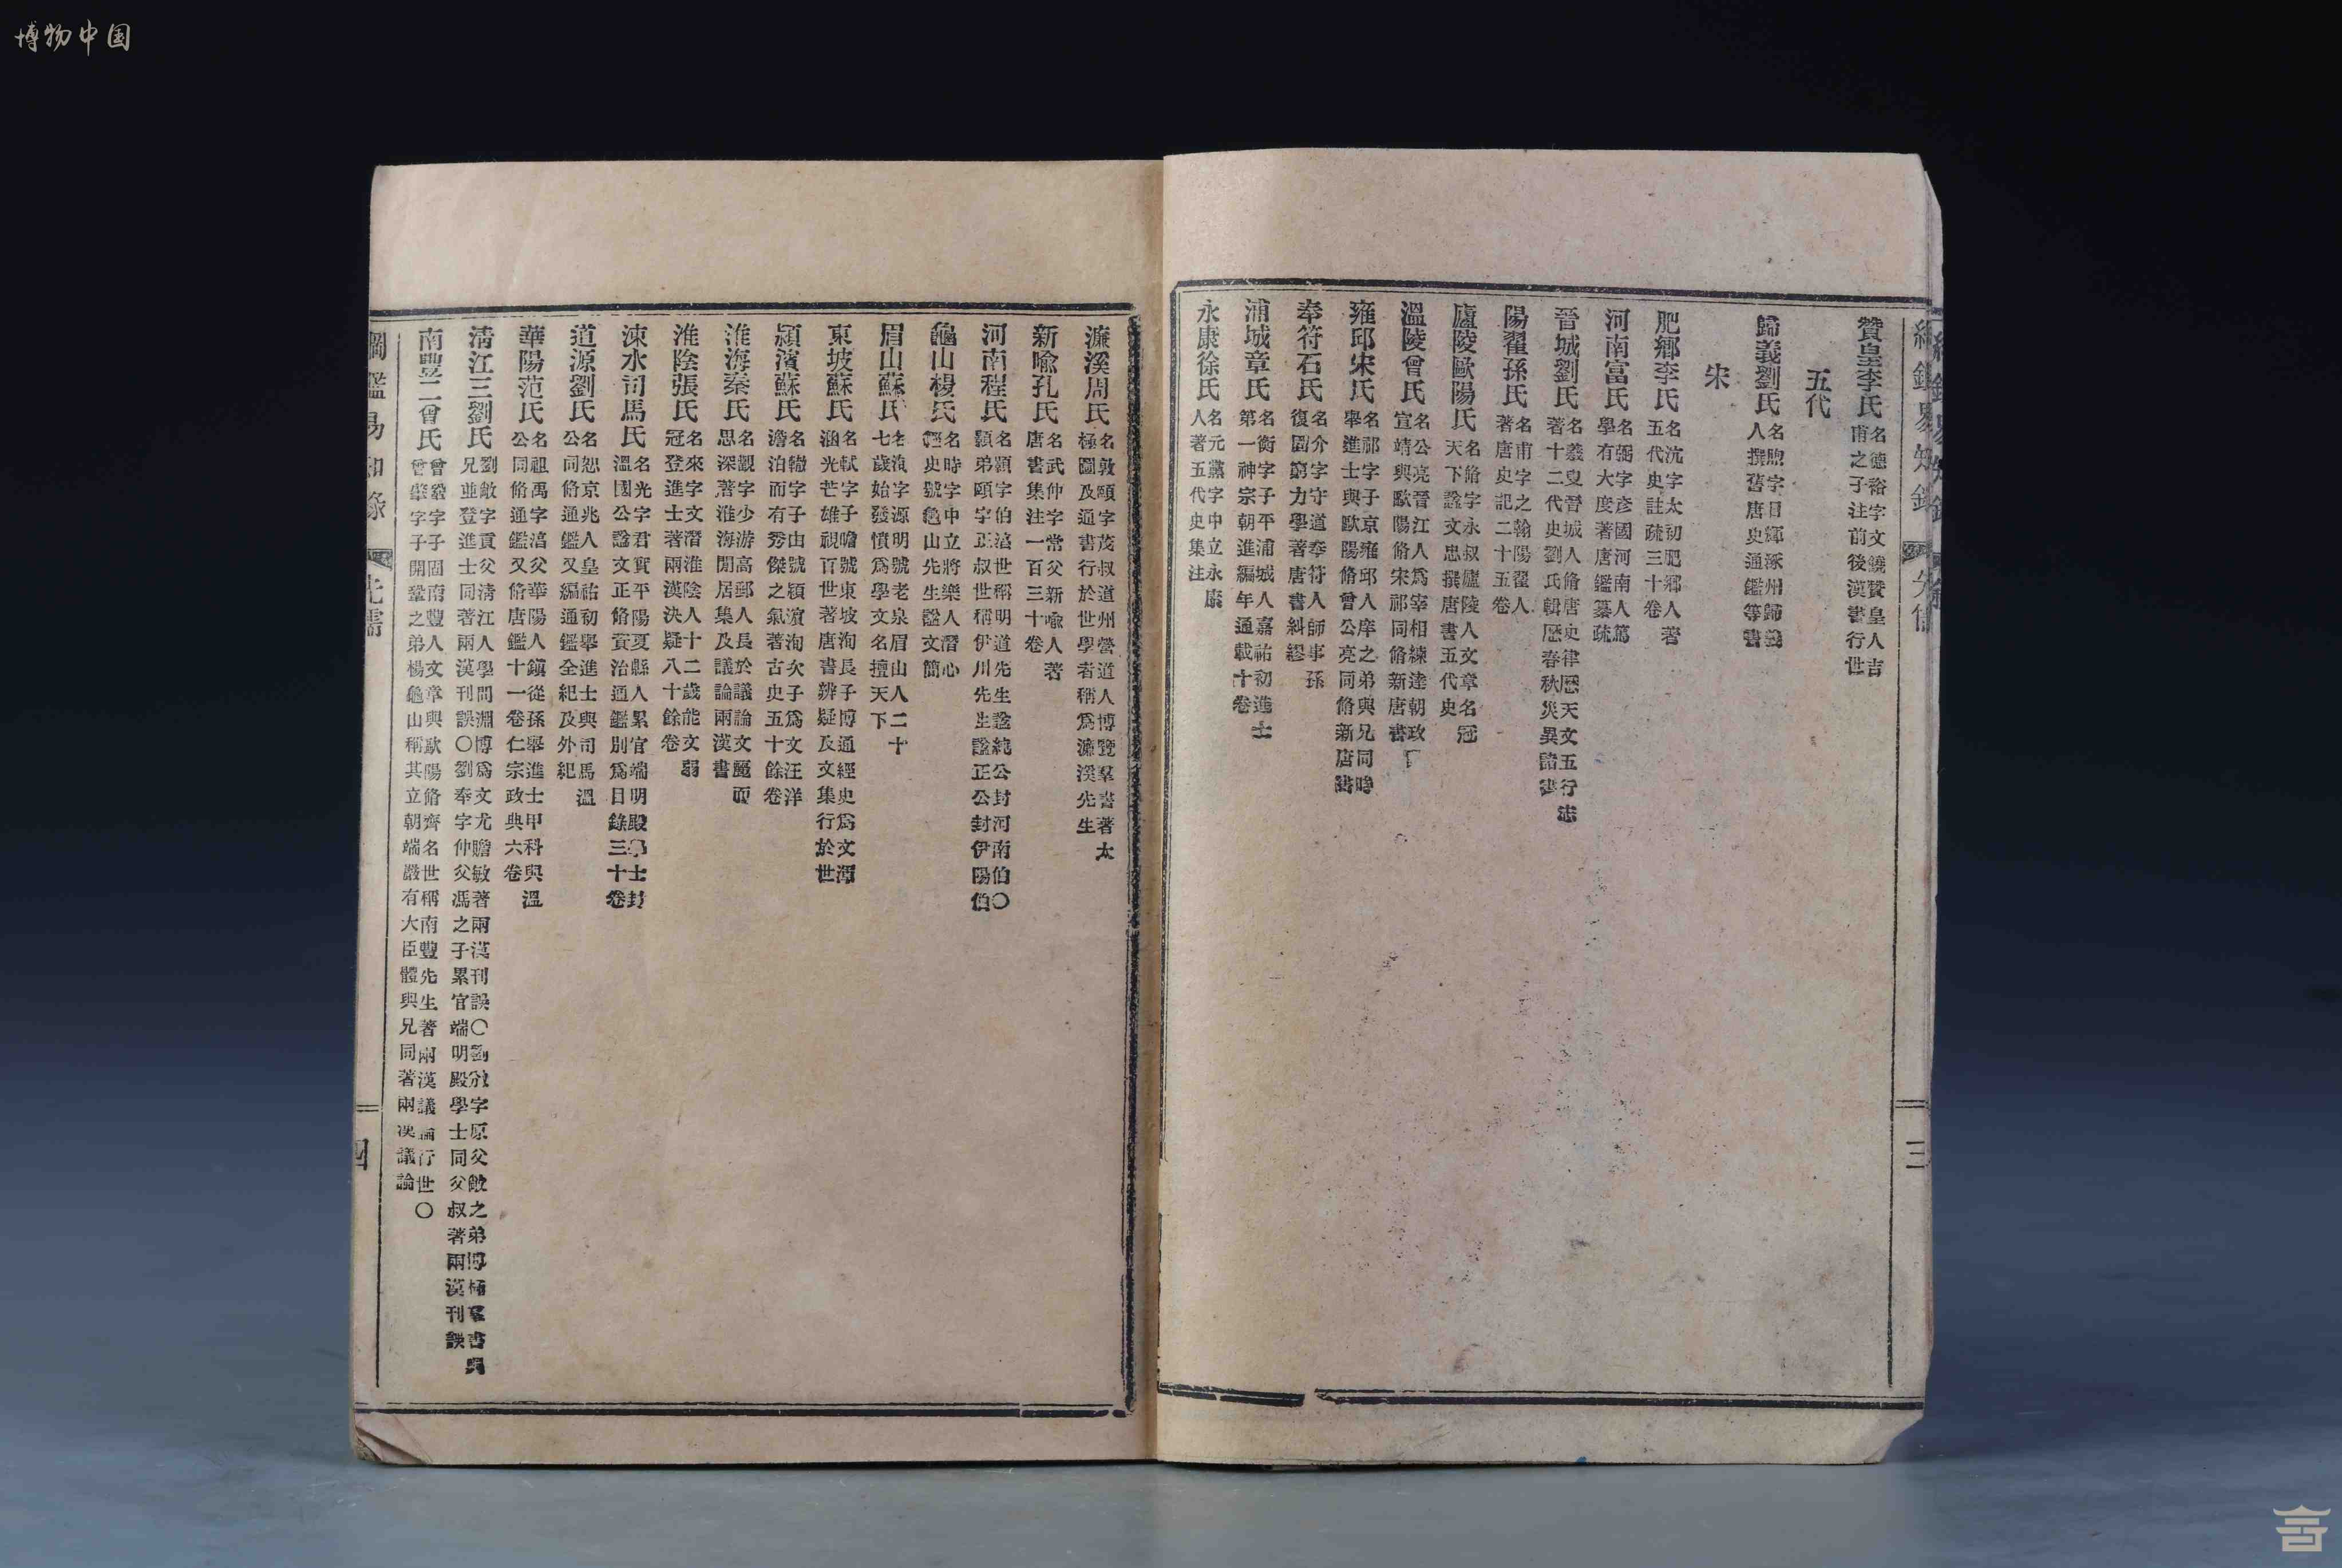 博物中国
贊皇李氏 名德裕字文饒贊皇人吉甫之子注前後漢書行世
五代
歸義劉氏 名昫字日輝涿州歸義人撰舊唐史通鑑等書
宋
肥鄉李氏 名沆字太初肥鄉人著五代史註疏三十卷
河南富氏 名弼字彥國河南人篤學有大度著唐鑑纂疏
晉城劉氏 名羲叟晉城人脩唐史律歷天文五行志著十二代史劉氏輯歷春秋災異諸書
陽翟孫氏 名甫字之翰陽翟人著唐史記二十五卷
廬陵歐陽氏 名脩字永叔廬陵人文章名冠天下諡文忠撰唐書五代史
溫陵曾氏 名公亮晉江人爲宰相練達朝政下宣靖與歐陽脩宋祁同脩新唐書
雍邱宋氏 名祁字子京雍邱人庠之弟與兄同時舉進士與歐陽脩曾公亮同脩新唐書
奉符石氏 名介字守道奉符人師事孫復固窮力學著唐書糾繆
浦城章氏 名衡字子平浦城人嘉祐初進士第一神宗朝進編年通載十卷
永康徐氏 名元黨字中立永康人著五代史集注
三
濂溪周氏 名敦頤字茂叔道州營道人博覽羣書著太極圖及通書行於世學者稱爲濂溪先生
新喩孔氏 名武仲字常父新喩人著唐書集注一百三十卷
河南程氏 名顥字伯淳世稱明道先生諡純公封河南伯〇顥弟頤字正叔世稱伊川先生諡正公封伊陽伯
龜山楊氏 名時字中立將樂人潛心經史號龜山先生諡文簡
眉山蘇氏 名洵字源明號老泉眉山人二十七歲始發憤爲學文名擅天下
東坡蘇氏 名軾字子瞻號東坡洵長子博通經史爲文渾涵光芒雄視百世著唐書辨疑及文集行於世
潁濱蘇氏 名轍字子由號潁濱洵次子爲文汪洋澹泊而有秀傑之氣著古史五十餘卷
淮海秦氏 名觀字少游高郵人長於議論文麗而思深著淮海閒居集及議論兩漢書
淮陰張氏 名來字文潛淮陰人十二歲能文弱冠登進士著兩漢決疑八十餘卷
涑水司馬氏 名光字君實平陽夏縣人累官端明殿學士封溫國公諡文正脩資治通鑑別爲目錄三十卷
道源劉氏 名恕京兆人皇祐初舉進士與司馬溫公同脩通鑑又編通鑑全紀及外紀
華陽范氏 名祖禹字淳父華陽人鎭從孫舉進士甲科與溫公同脩通鑑又脩唐鑑十一卷仁宗政典六卷
清江三劉氏 劉敞字貢父清江人學問淵博爲文尤贍敏著兩漢刊誤〇劉攽字原父敞之弟博極羣書與兄並登進士同著兩漢刊誤〇劉奉字仲父馮之子累官端明殿學士同父叔著兩漢刊誤
南豐二曾氏 曾鞏字子固南豐人文章與歐陽脩齊名世稱南豐先生著兩漢議論行世〇曾肇字子開鞏之弟楊龜山稱其立朝端嚴有大臣體與兄同著兩漢議論
綱鑑易知錄 先儒 四